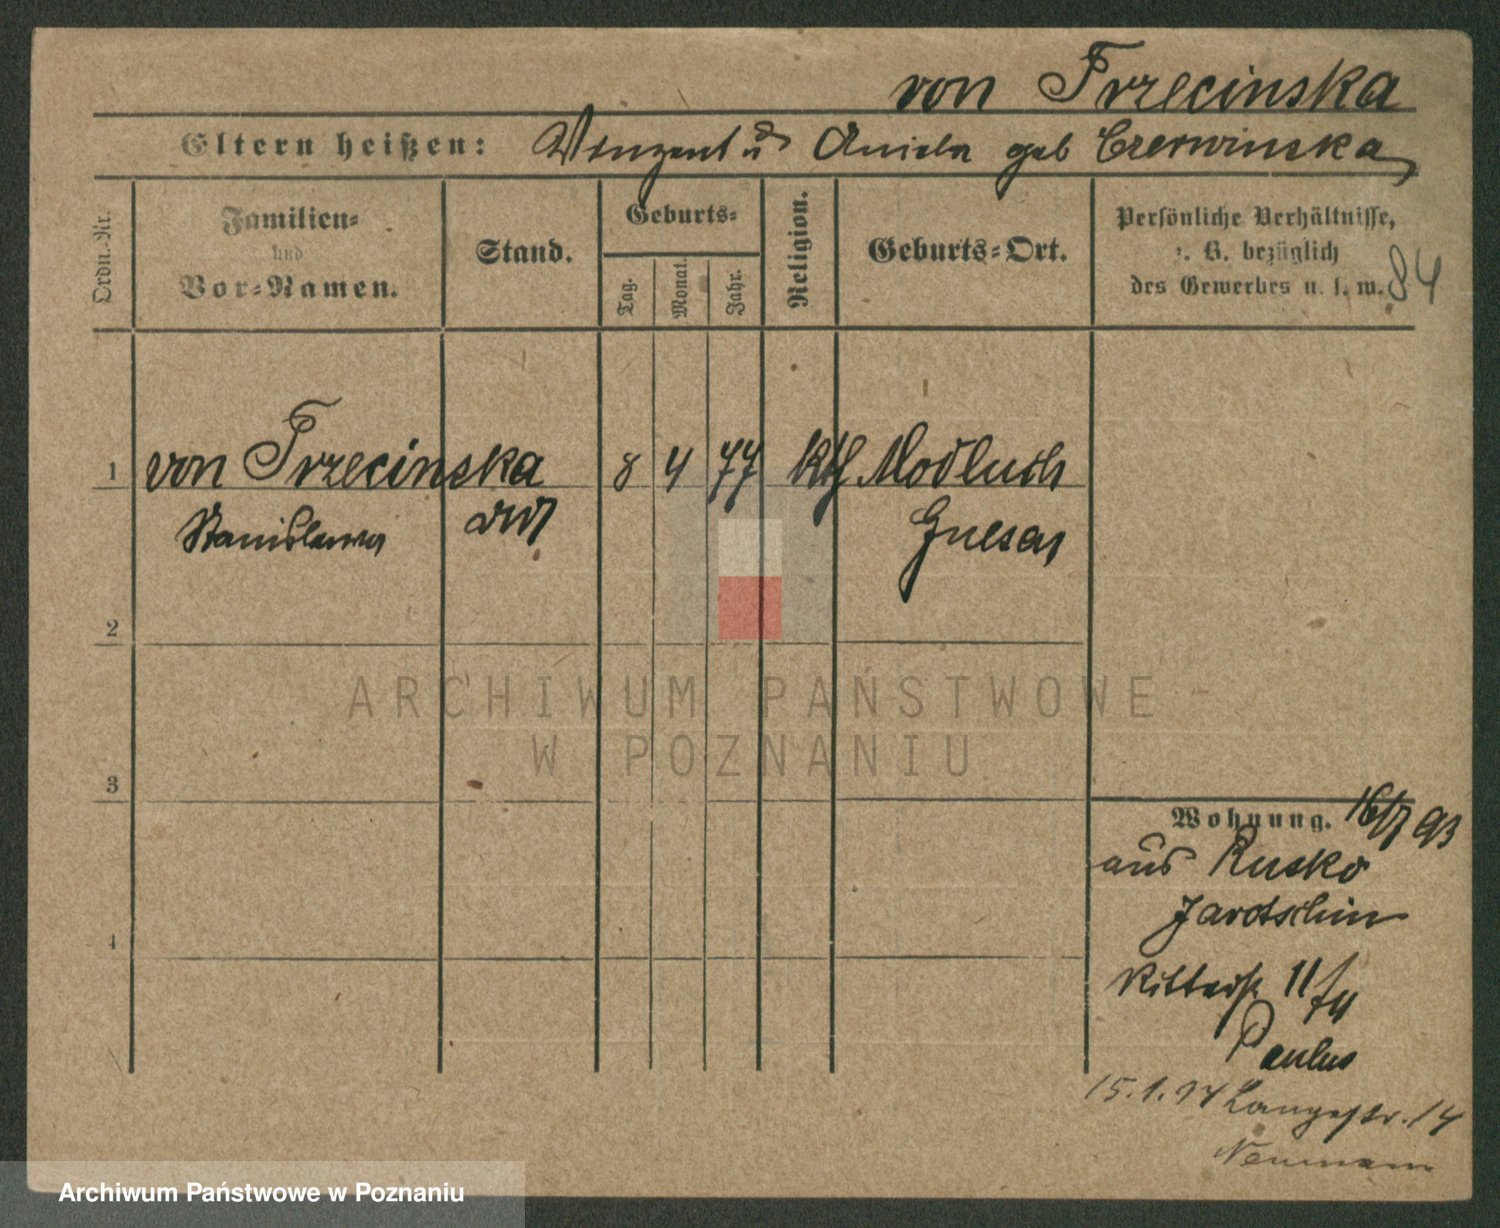 von Trzecinska
Eltern heißen: Vinzent u Aniela geb Czerwinska
Ordn.-Nr.
Familien-
und
Vor-Namen.
Stand.
Geburts-
Tag.
Monat.
Jahr.
Religion.
Geburts-Ort.
Persönliche Verhältnisse,
z. B. bezüglich
des Gewerbes u. s. w.
84
1 von Trzecinska 8 4 77 kth
Stanislawa
Gnesen
2
3
4
ARCHIWUM PAŃSTWOWE
W POZNANIU
Wohnung. 16/7 93
aus Rusko
Jarotschin
Ritterstr 11/
Paulus
15.1.94 Langestr. 14
Neumann
Archiwum Państwowe w Poznaniu